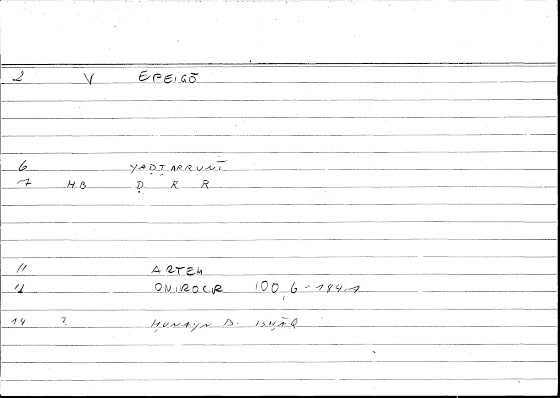 2 V EPEIGŌ
6 YAḌṬARRUNĪ
7 H.B Ḍ R R
11 ARTEM
12 ONIROCR 100,6-184,1
14 2 ḤUNAYN B. ISḤĀQ